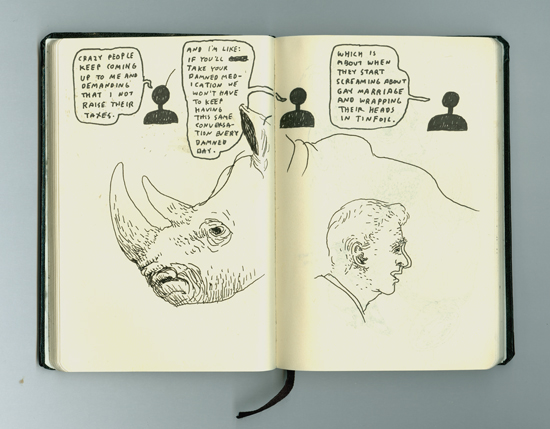 CRAZY PEOPLE
KEEP COMING
UP TO ME AND
DEMANDING
THAT I NOT
RAISE THEIR
TAXES.
AND I'M LIKE:
IF YOU'LL
TAKE YOUR
DAMNED MED-
ICATION WE
WON'T HAVE
TO KEEP
HAVING
THIS SAME
CONVERSA-
TION EVERY
DAMNED
DAY.
WHICH IS
ABOUT WHEN
THEY START
SCREAMING ABOUT
GAY MARRIAGE
AND WRAPPING
THEIR HEADS
IN TINFOIL.